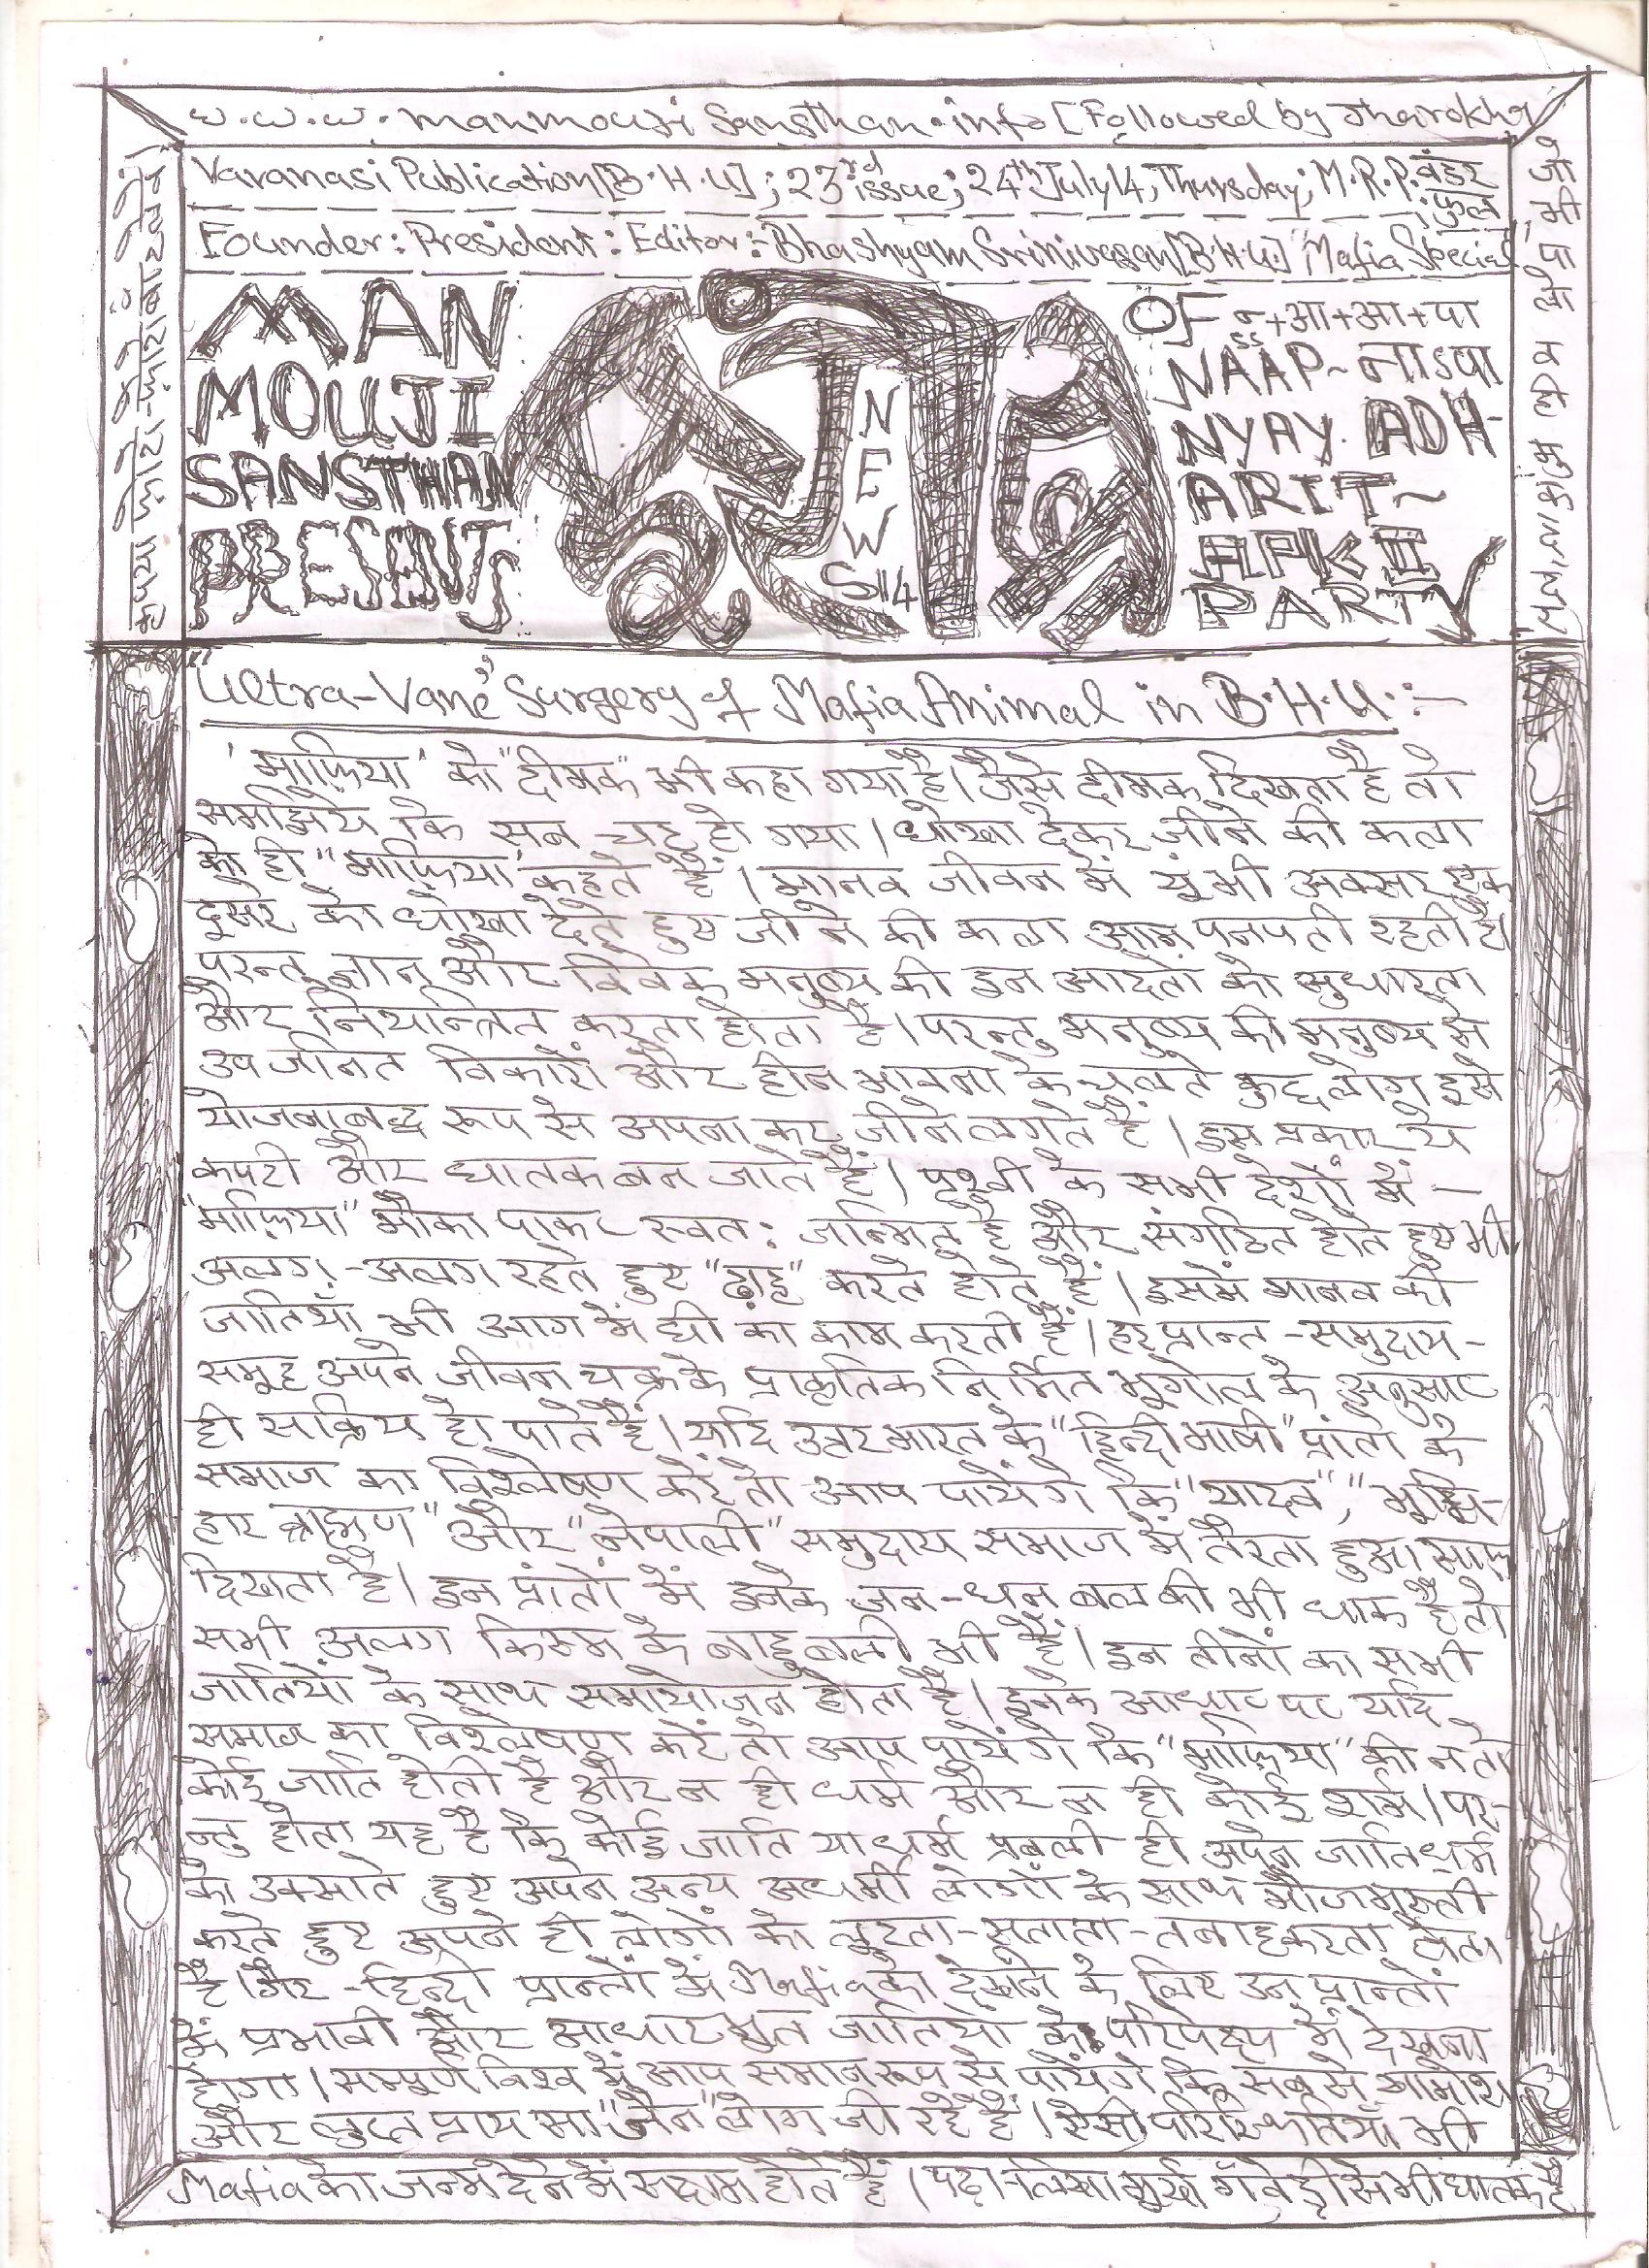 w.w.w. manmouji Sansthan.info [Followed by Jharokha
Varanasi Publication [B.H.U]; 23rd issue; 24th July14, Thursday; M.R.P. वंडर
फुल
Founder: President: Editor:- Bhashyam Srinivasan [B.H.U.] "Mafia Special
MAN
MOUJI
SANSTHAN
PRESENTS
NEWS14
OF न+आ+आ+पा
NAAP~नाऽपा
NYAY ADH-
ARIT~
APKII
PARTY
कृपया फ़ोटो-फ़ोटो
"Ultra-Vane" Surgery of Mafia Animal in B.H.U.:-
'माफ़िया' को "दीमक" भी कहा गया है। जैसे दीमक दिखता है तो
समझिये कि सब चट हो गया। धोखा देकर जीने की कला
को ही "माफ़िया" कहते हैं। मानव जीवन में यूं भी अक्सर एक
दूसरे को धोखा देते हुए जीने की कला आन पनपती रहती है।
परन्तु ज्ञान और विवेक मनुष्य की इन आदतों को सुधारता
और नियन्त्रित करता होता है। परन्तु मनुष्य की मनुष्य से
उपजनित विकारों और हीन भावना के चलते कुछ लोग इसे
योजनाबद्ध रूप से अपना कर जीने लगते हैं। इस प्रकार ये
कपटी और घातक बन जाते हैं। पृथ्वी के सभी देशों में -
"माफ़िया" मौका पाकर स्वत: जन्मित है और संगठित होते हुए भी
अलग-अलग रहते हुए "ढ़ाह" करते होते हैं। इसमें मानव की
जातियाँ भी आग में घी का काम करती हैं। हर प्रान्त-समुदाय-
समूह अपने जीवन चक्र के प्राकृतिक निर्मित भूगोल के अनुसार
ही सक्रिय हो पाते हैं। यदि उत्तर भारत के "हिन्दी भाषी" प्रांतो के
समाज का विश्लेषण करें तो आप पायेंगे कि "यादव", "भूमि-
हार ब्राह्मण" और "नेपाली" समुदाय समाज में तैरता हुआ साफ़
दिखता है। इन प्रांतों में इनके जन-धन बल की भी धाक है तो
सभी अलग किस्म के बाहुबली भी हैं। इन तीनों का सभी
जातियों के साथ समायोजन होता है। इनके आधार पर यदि
समाज का विश्लेषण करें तो आप पायेंगे कि "माफ़िया" की न तो
कोई जाति होती है और न ही धर्म और न ही कोई शर्म। पर-
न्तु होता यह है कि कोई जाति या धर्म प्रबली ही अपने जाति धर्म
को उकसाते हुए अपने अन्य अधर्मी लोगों के साथ मौजमस्ती
करते हुए अपने ही लोगों को लूटता-सताता-तबाह करता होता
है। गैर-हिन्दी प्रान्तों में Mafia को देखने के लिए उन प्रान्तों
में प्रभावी और आधारभूत जातियों के परिपेक्ष्य में देखना
होगा। सम्पूर्ण विश्व में आप समान रूप से पायेंगे कि सबसे खामोश
और लुप्त प्राय सा "जैन" लोग जी रहे हैं। ऐसी परिस्थितियाँ भी
Mafia को जन्म देने में सक्षम होते हैं। पढ़ा-लिखा मूर्ख गंवेड़ी से भी घातक है